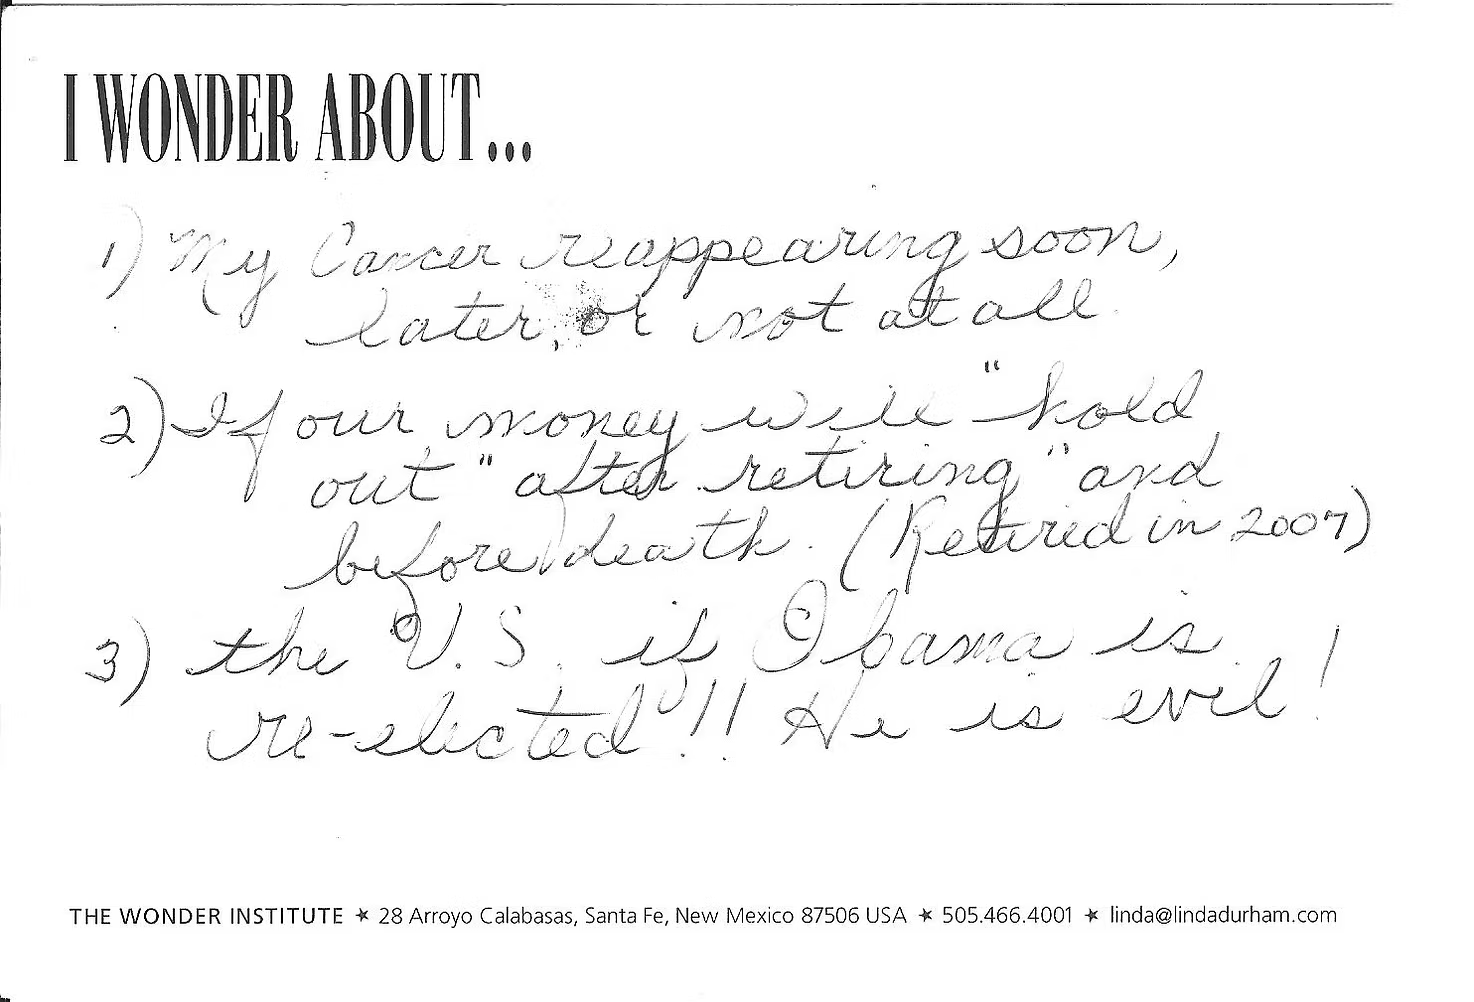 I WONDER ABOUT...
1) My Cancer reappearing soon,
later, or not at all.
2) If our money will "hold
out" after retiring" and
before death. (Retired in 2007)
3) the U.S. if Obama is
re-elected!! He is evil!
THE WONDER INSTITUTE ★ 28 Arroyo Calabasas, Santa Fe, New Mexico 87506 USA ★ 505.466.4001 ★ linda@lindadurham.com